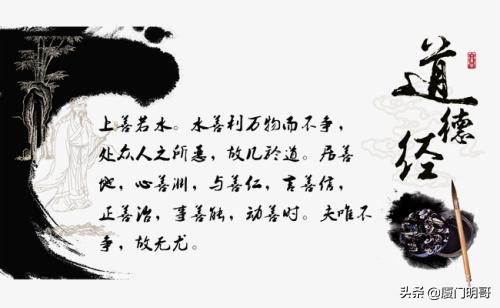 道德经
上善若水。水善利万物而不争，
处众人之所恶，故几於道。居善
地，心善渊，与善仁，言善信，
正善治，事善能，动善时。夫唯不
争，故无尤。
头条 @厦门明哥